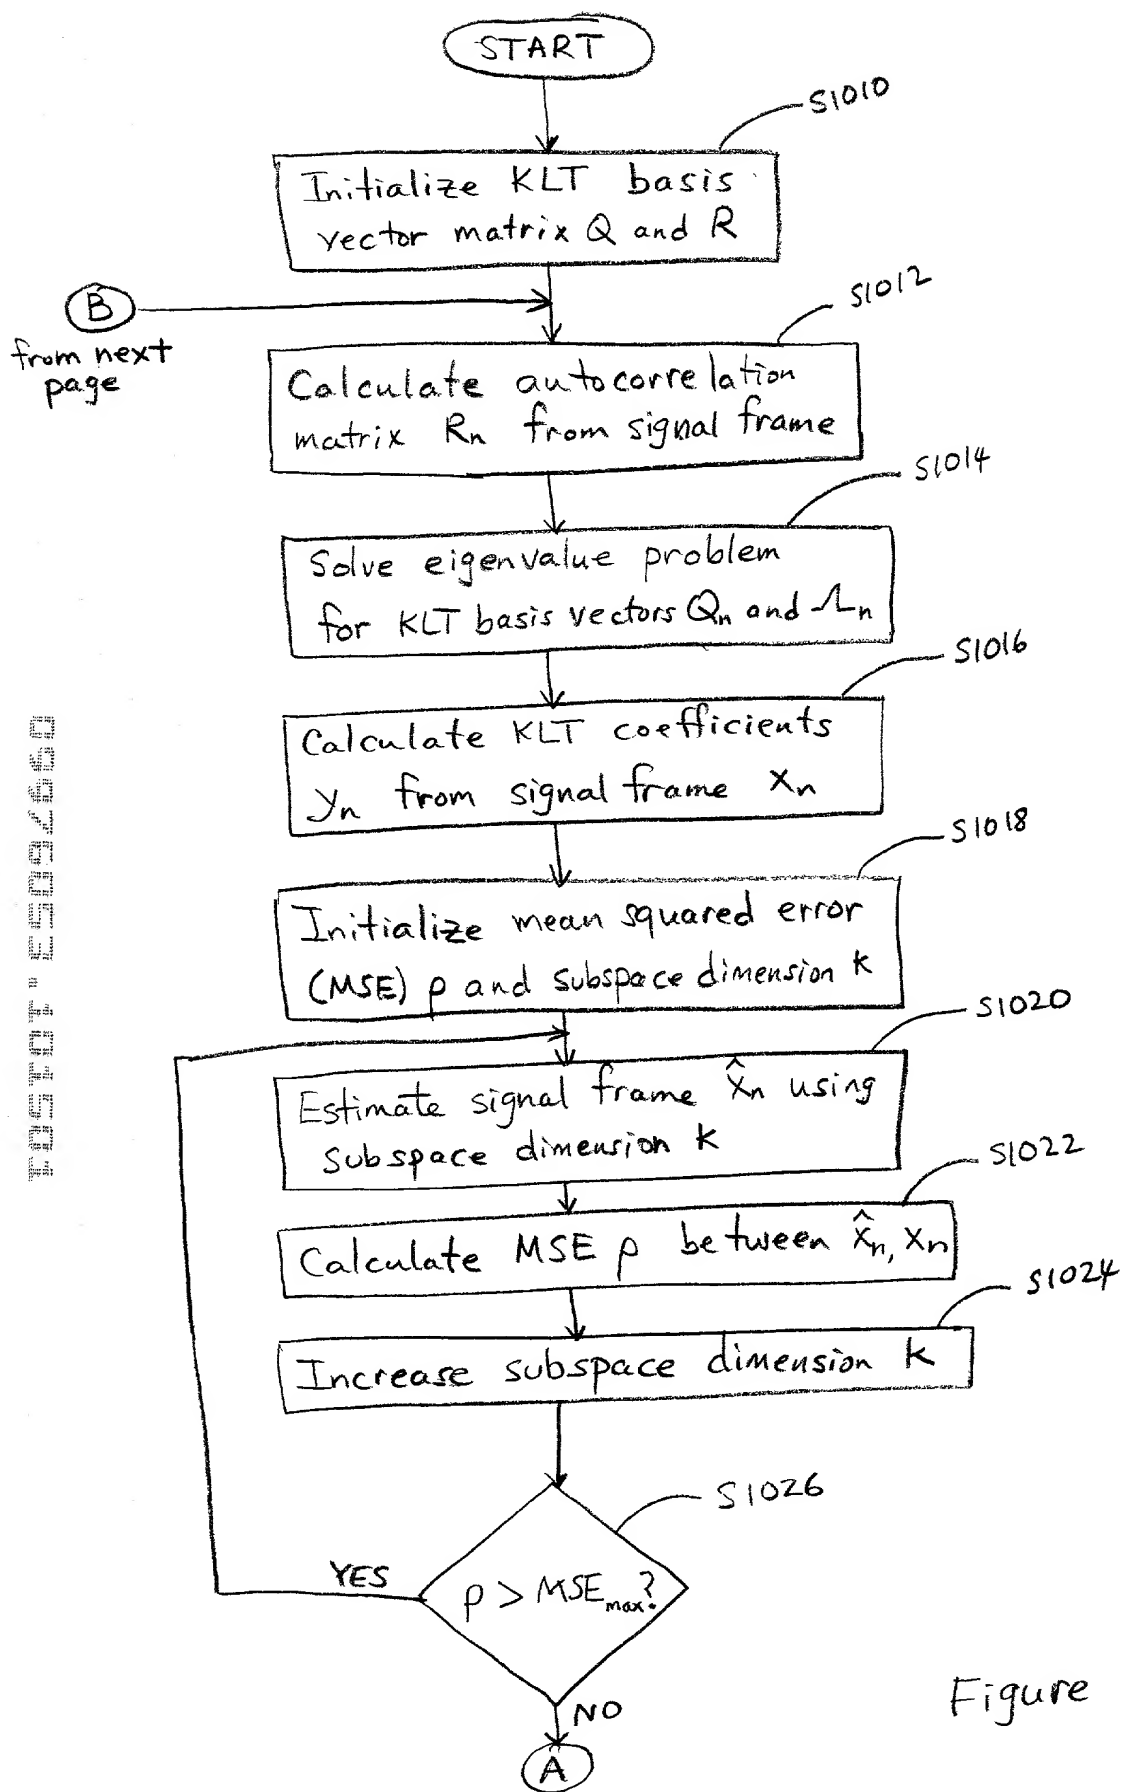 START
S1010
Initialize KLT basis
vector matrix Q and R
B
from next
page
S1012
Calculate autocorrelation
matrix Rn from signal frame
S1014
Solve eigenvalue problem
for KLT basis vectors Qn and Λn
S1016
Calculate KLT coefficients
yn from signal frame xn
S1018
Initialize mean squared error
(MSE) ρ and subspace dimension k
S1020
Estimate signal frame x̂n using
subspace dimension k
S1022
Calculate MSE ρ between x̂n, xn
S1024
Increase subspace dimension k
S1026
YES
ρ > MSEmax?
NO
A
Figure
09976053.101501